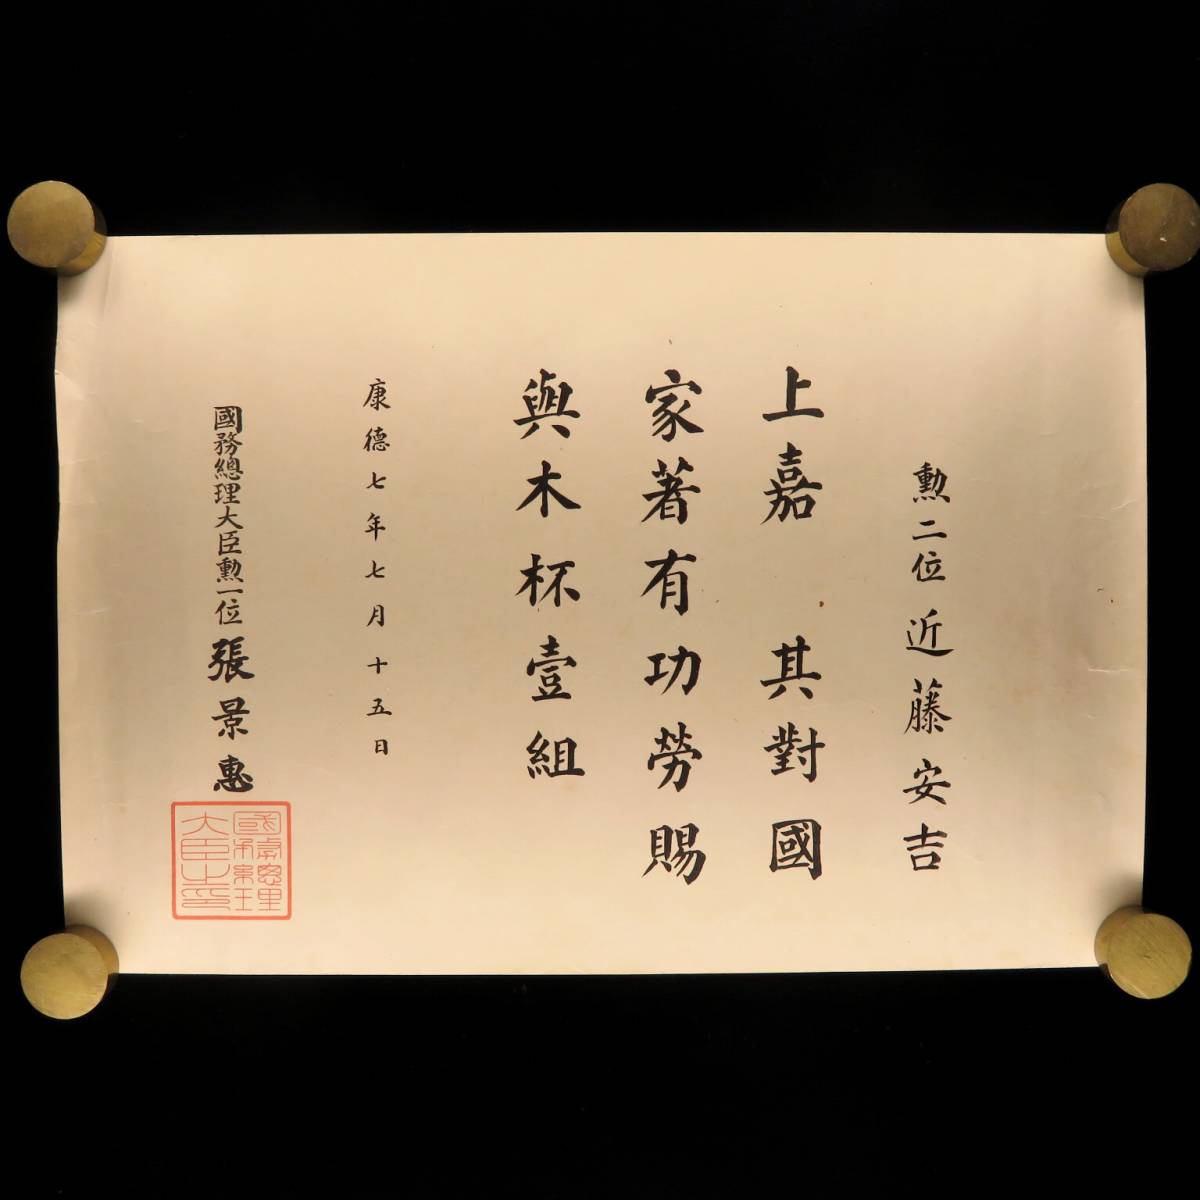 勲二位 近藤安吉
上嘉 其對國
家著有功勞賜
與木杯壹組
康德七年七月十五日
國務總理大臣勲一位 張景惠
國務總理
大臣之印